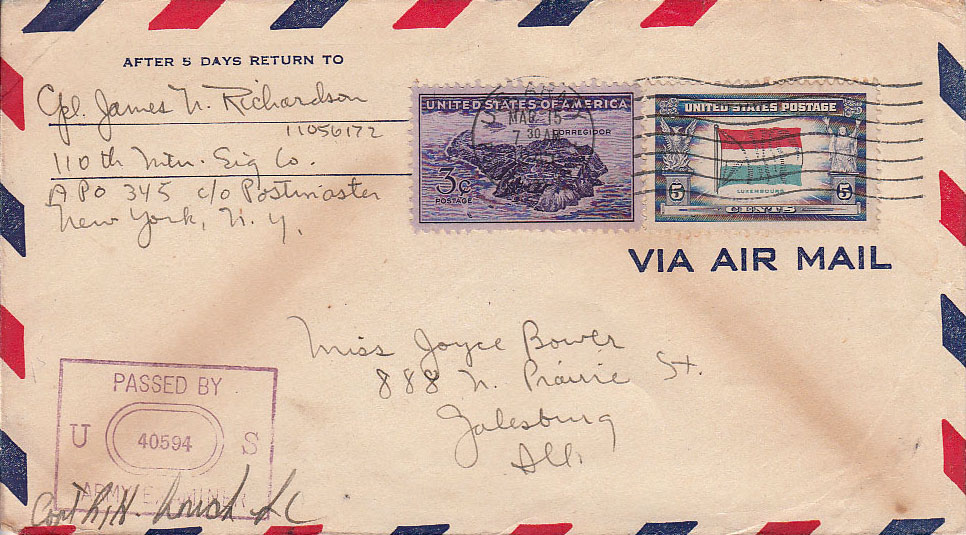 AFTER 5 DAYS RETURN TO
Cpl. James N. Richardson
11056172
110th Mtn. Sig Co.
APO 345 c/o Postmaster
New York, N.Y.
UNITED STATES OF AMERICA
CORREGIDOR
3¢
POSTAGE
MAR 15
7 30 AM
UNITED STATES POSTAGE
LUXEMBOURG
5 5
CENTS
VIA AIR MAIL
Miss Joyce Bower
888 N. Prairie St.
Galesburg
Ill.
PASSED BY
U 40594 S
ARMY EXAMINER